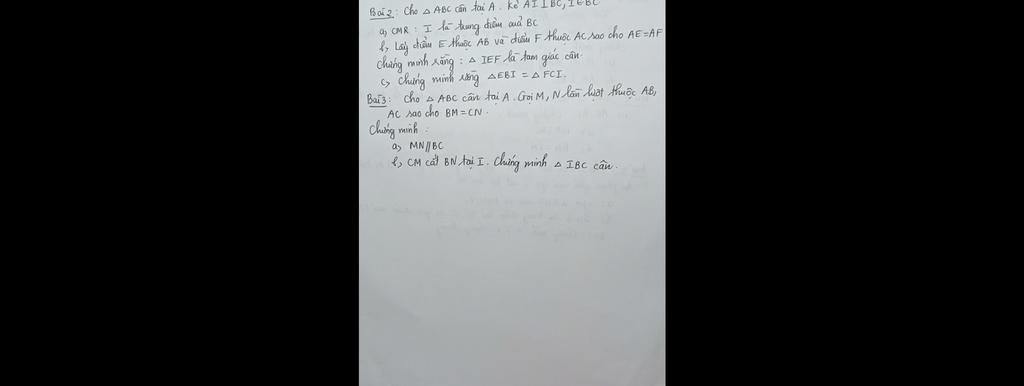 Bài 2: Cho △ ABC cân tại A. Kẻ AI ⊥ BC, I ∈ BC
a, CMR: I là trung điểm của BC
b, Lấy điểm E thuộc AB và điểm F thuộc AC sao cho AE = AF
Chứng minh rằng: △ IEF là tam giác cân.
c, Chứng minh rằng △EBI = △ FCI.
Bài 3: Cho △ ABC cân tại A. Gọi M, N lần lượt thuộc AB,
AC sao cho BM = CN.
Chứng minh:
a, MN // BC
b, CM cắt BN tại I. Chứng minh △ IBC cân.